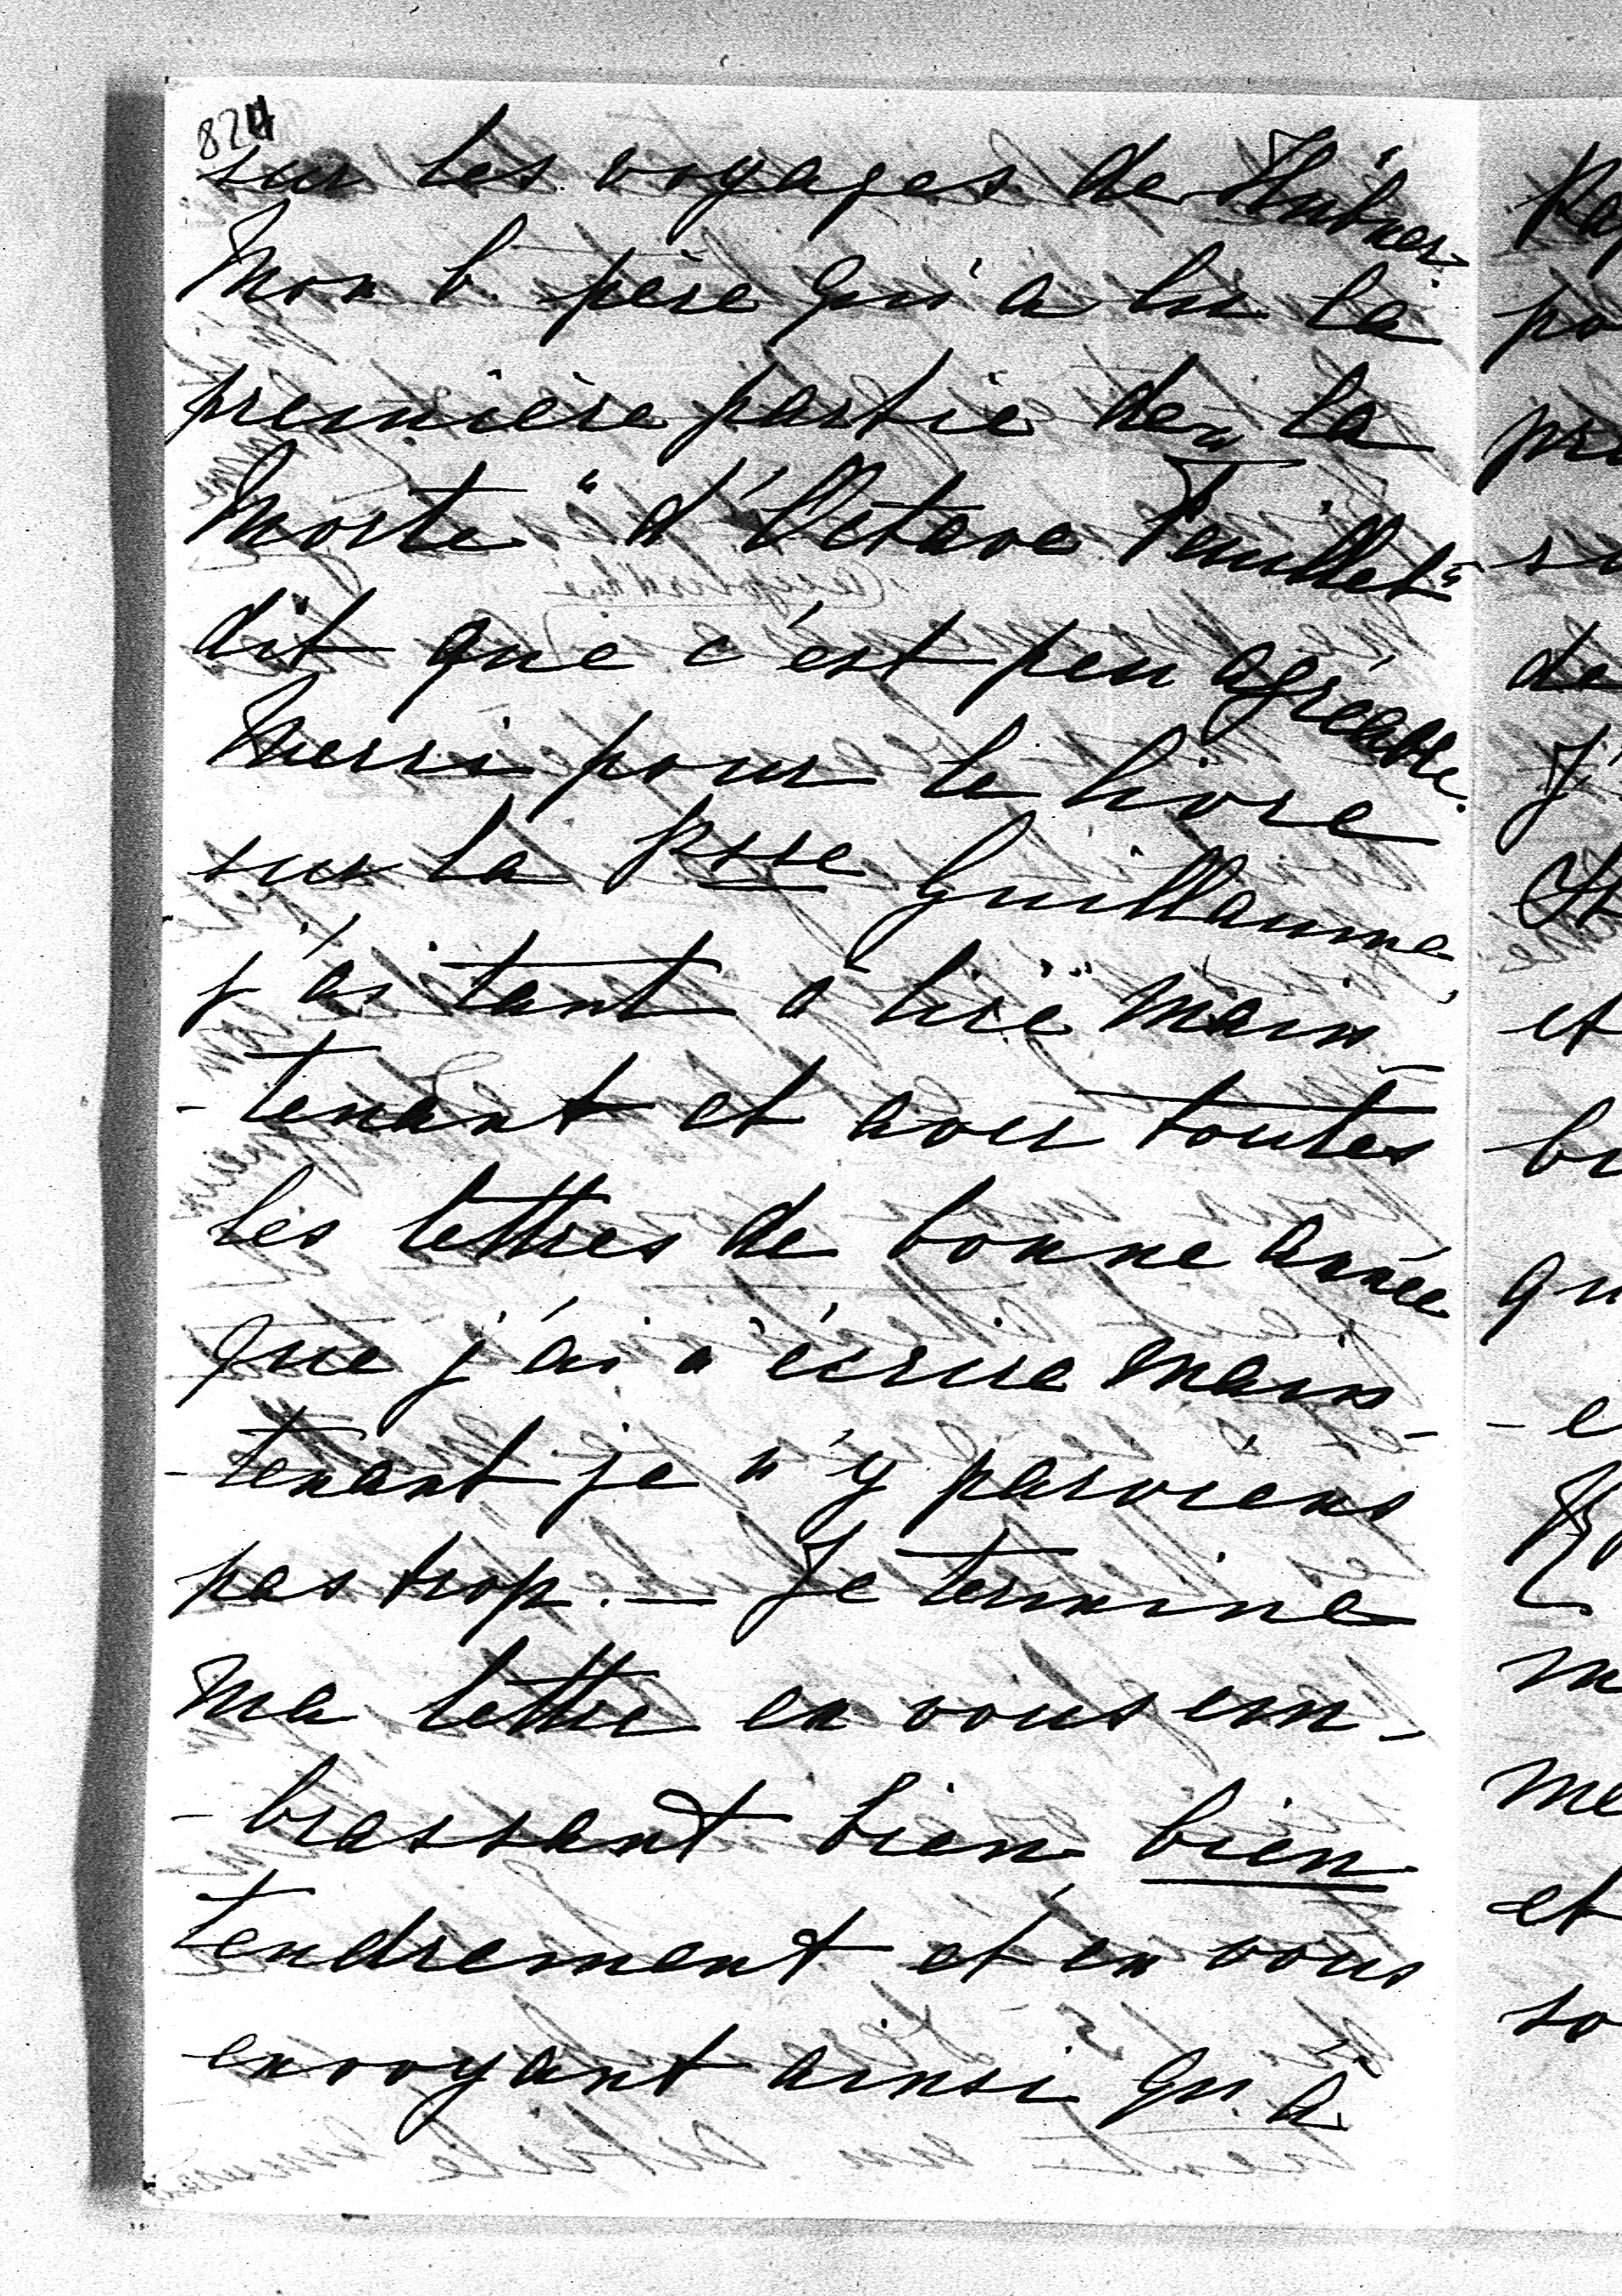 824
sur les voyages de Hübner.
Mon b. père qui a lu la
première partie de „la
Morte" d'Octave Feuillet"
dit que c'est peu agréable.
Merci pour le livre
sur la Psse Guillaume,
j'ai tant à lire main-
-tenant et avec toutes
les lettres de bonne année
que j'ai à écrire main-
-tenant je n'y parviens
pas trop. — Je termine
ma lettre en vous em-
-brassant bien bien
tendrement et en vous
envoyant ainsi qu'à